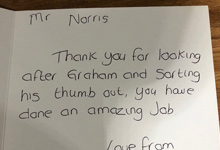 Mr Norris
Thank you for looking
after Graham and Sorting
his thumb out, you have
done an amazing Job
Love from